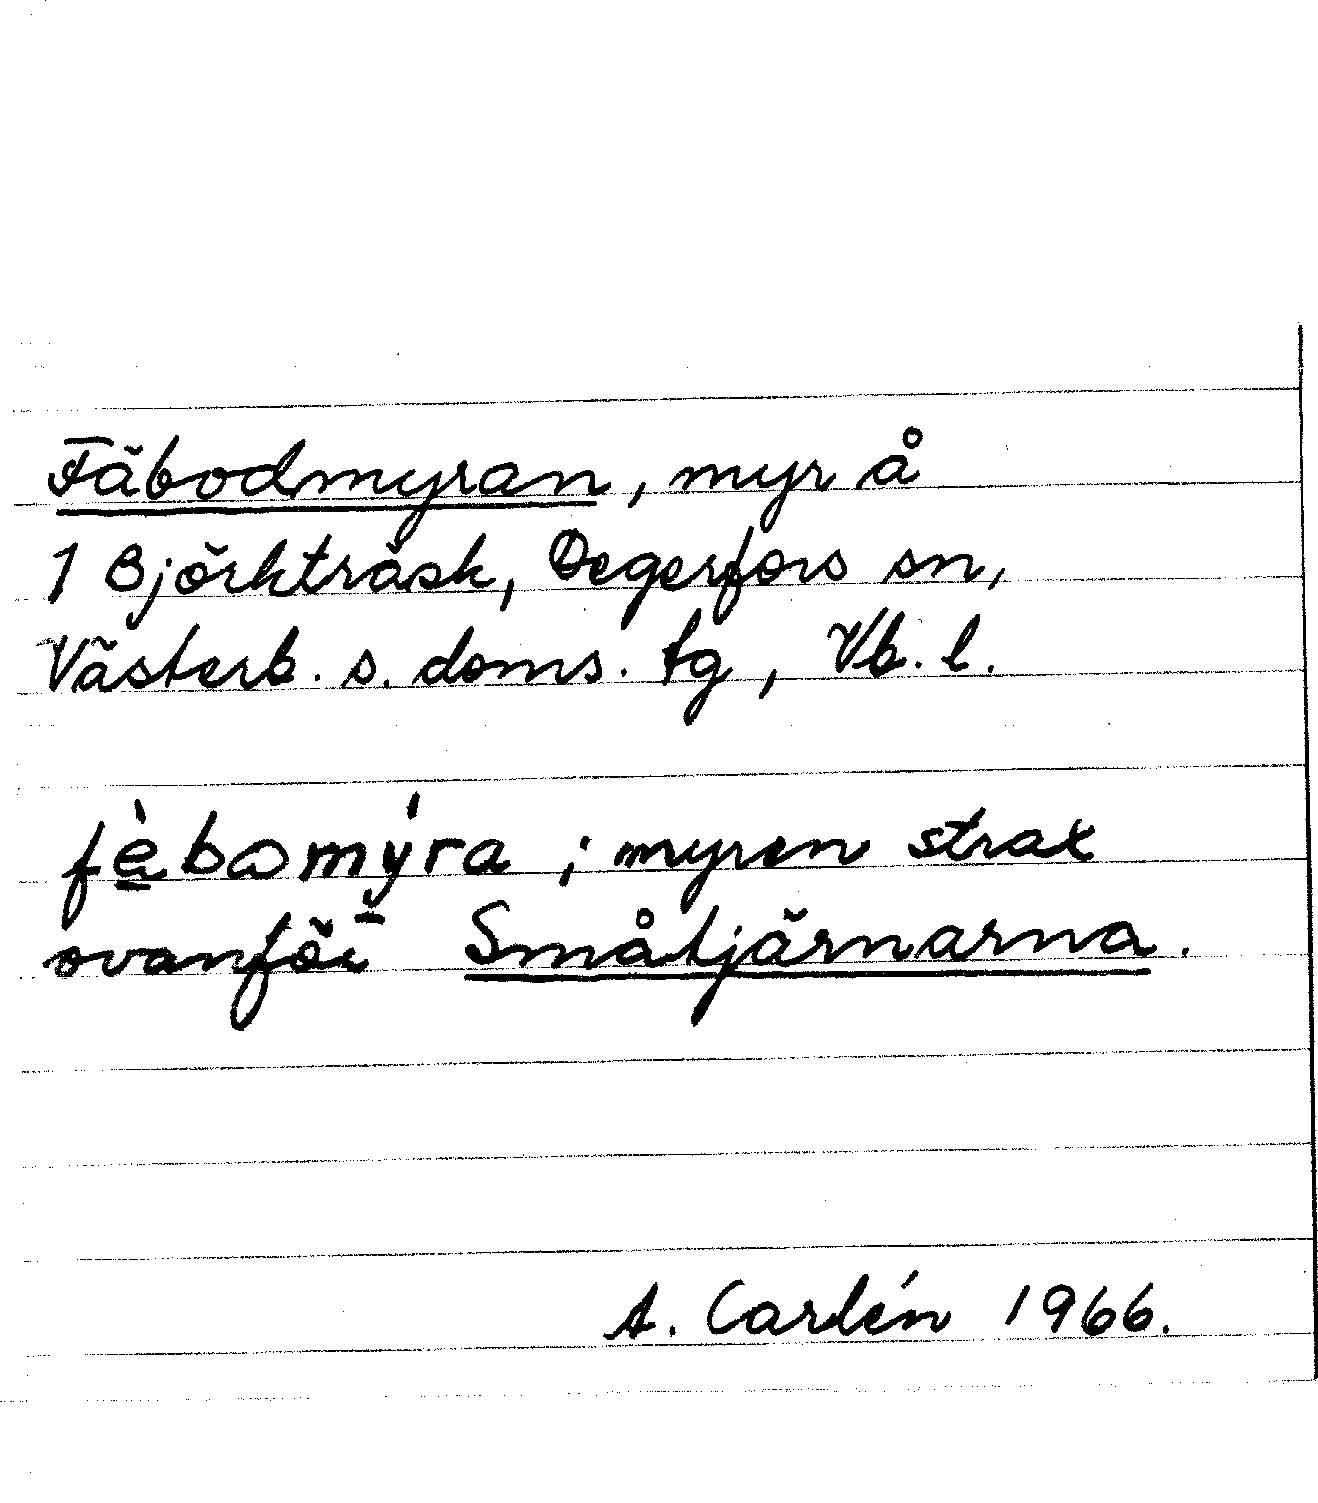 Fäbodmyran, myr å
1 Björkträsk, Degerfors sn,
Västerb. s. doms. tg, Vb. l.
ovanför Småtjärnarna.
; myren strax
A. Carlén 1966.